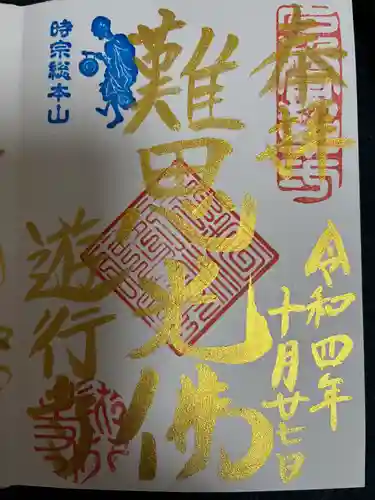 奉拝
令和四年
十月廿七日
難思光佛
時宗総本山
遊行寺